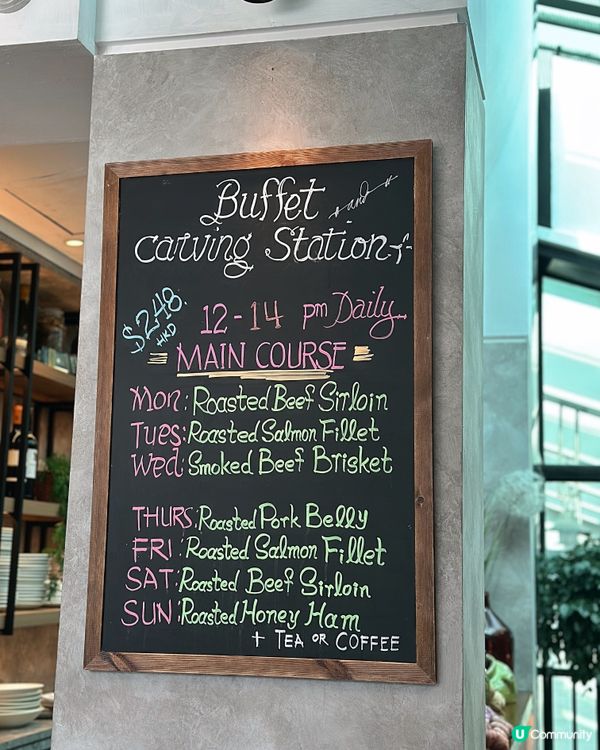 Buffet and
carving Station
$248.
HKD
12-14 pm Daily
MAIN COURSE
Mon: Roasted Beef Sirloin
Tues: Roasted Salmon Fillet
Wed: Smoked Beef Brisket
THURS: Roasted Pork Belly
FRI: Roasted Salmon Fillet
SAT: Roasted Beef Sirloin
SUN: Roasted Honey Ham
+ TEA OR COFFEE
U Community